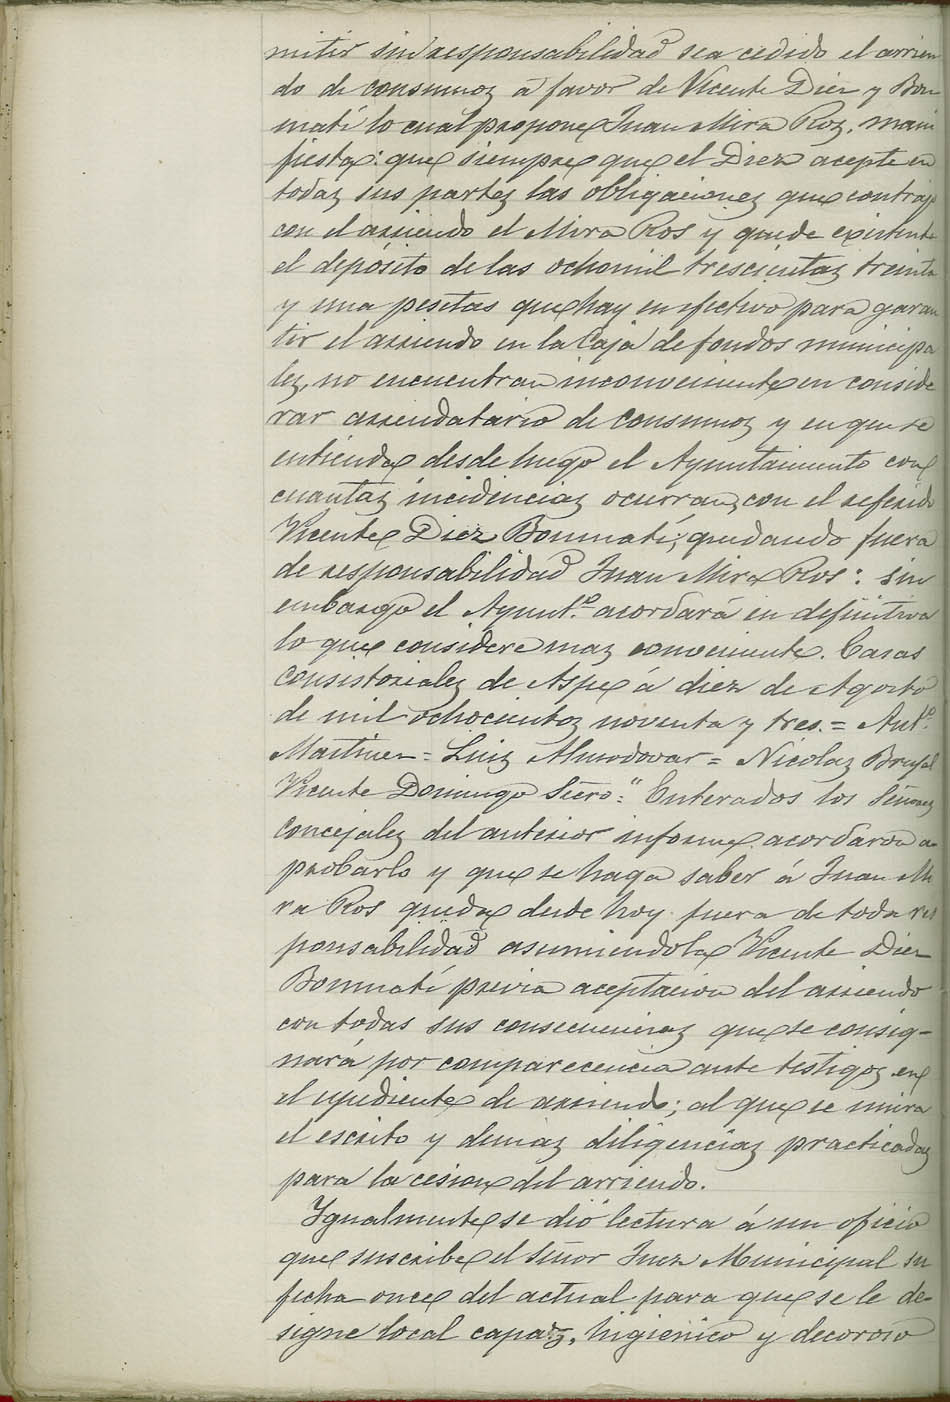 mitir sin responsabilidad sea cedido el arrien
do de consumos á favor de Vicente Diez y Bon
matí lo cual propone Juan Mira Ros, mani
fiesta: que siempre que el Diez acepte en
todas sus partes las obligaciones que contrajo
con el arriendo el Mira Ros y quede existente
el depósito de las ocho mil trescientas treinta
y una pesetas que hay en efectivo para garan
tir el arriendo en la Caja de fondos municipa
les, no encuentran inconveniente en conside
rar arrendatario de consumos y en que se
entienda desde luego el Ayuntamiento con
cuantas incidencias ocurran, con el referido
Vicente Diez Bonmatí; quedando fuera
de responsabilidad Juan Mira Ros: sin
embargo el Ayuntº. acordará en definitiva
lo que considere mas conveniente. Casas
Consistoriales de Aspe á diez de Agosto
de mil ochocientos noventa y tres. = Antº.
Martinez = Luis Almodovar = Nicolas Brufal
Vicente Domingo Siero." Enterados los Señores
Concejales del anterior informe acordaron a
probarlo y que se haga saber á Juan Mi
ra Ros queda desde hoy fuera de toda res
ponsabilidad asumiendola Vicente Diez
Bonmatí previa aceptacion del arriendo
con todas sus consecuencias que se consig-
nará por comparecencia ante testigos en
el espediente de arriendo; al que se unira
el escrito y demas diligencias practicadas
para la cesion del arriendo.
Igualmente se dió lectura á un oficio
que suscribe el Señor Juez Municipal su
fecha once del actual para que se le de-
signe local capaz, higienico y decoroso